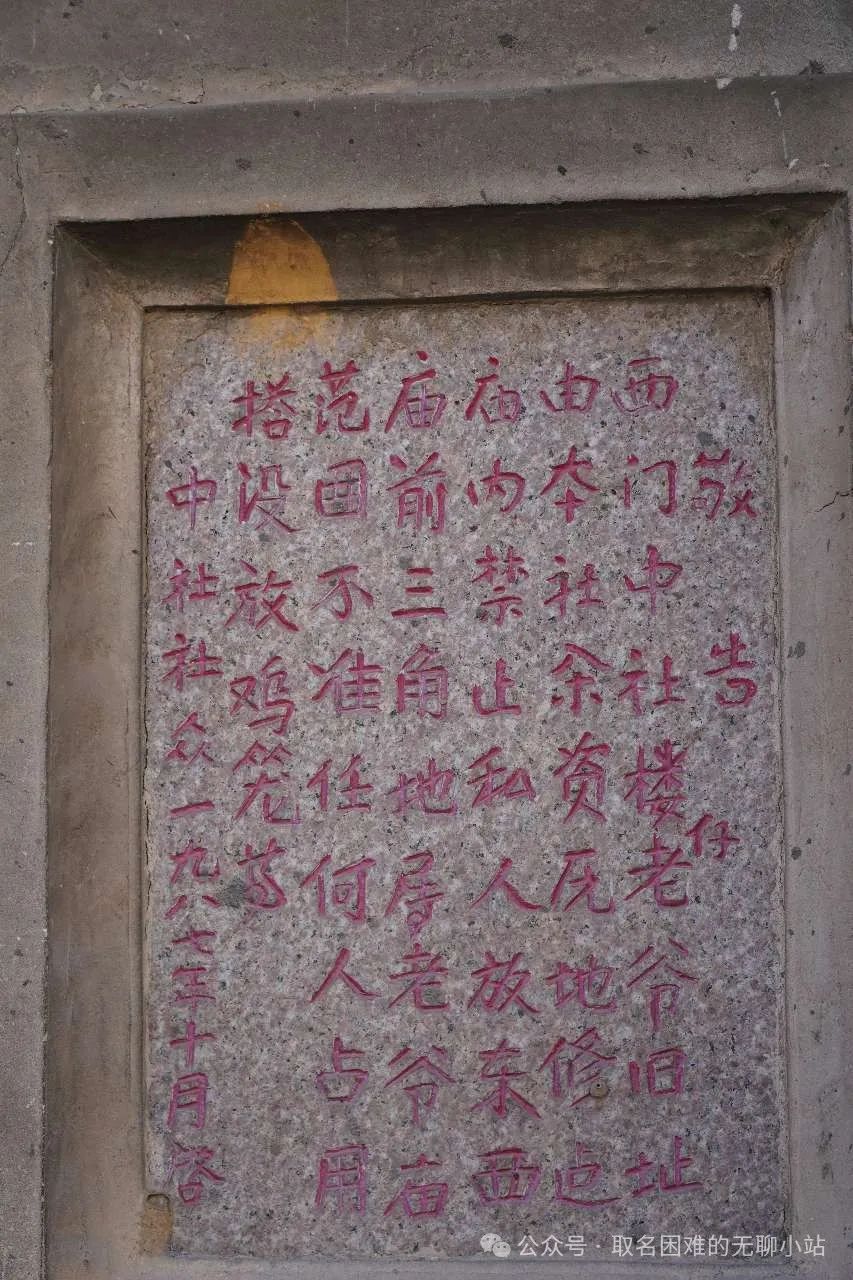 敬告
西门中社楼仔老爷旧址
由本社余资原地修迠
庙内禁止私人放东西
庙前三角地属老爷庙
范围不准任何人占用
搭没放鸡笼等
中社社众一九八七年十月启
公众号·取名困难的无聊小站